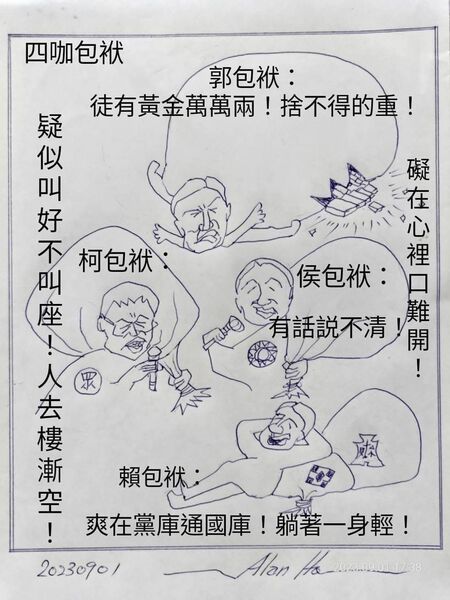 四咖包袱
郭包袱：
徒有黃金萬萬兩！捨不得的重！
疑似叫好不叫座！人去樓漸空！
礙在心裡口難開！
柯包袱：
侯包袱：
有話説不清！
眾
賴包袱：
爽在黨庫通國庫！躺著一身輕！
20230901
Alan Ho
2023.09.01 17:38